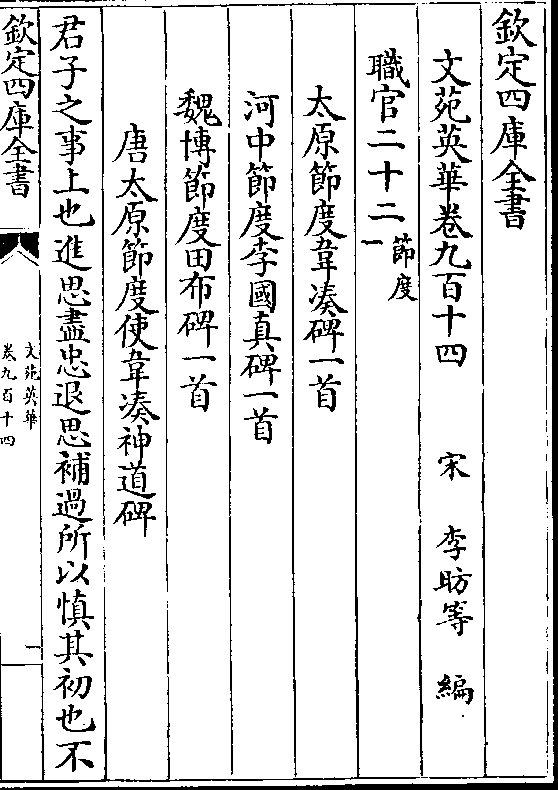 欽定四庫全書
文苑英華卷九百十四 宋 李昉等 編
職官二十二 節度一
太原節度韋湊碑一首
河中節度李國真碑一首
魏博節度田布碑一首
唐太原節度使韋湊神道碑
君子之事上也進思盡忠退思補過所以慎其初也不
欽定四庫全書
文苑英華
卷九百十四
一